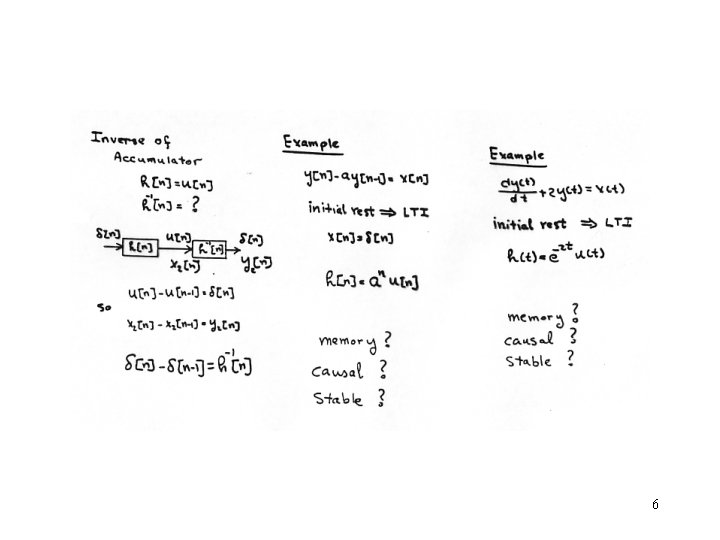 Inverse of
Accumulator
h[n]=u[n]
h⁻¹[n]= ?
δ[n]
h[n]
u[n]
x₂[n]
h⁻¹[n]
δ[n]
y₂[n]
u[n]-u[n-1]=δ[n]
so
x₂[n]-x₂[n-1]=y₂[n]
δ[n]-δ[n-1]=h⁻¹[n]
Example
y[n]-ay[n-1]= x[n]
initial rest ⇒ LTI
x[n]=δ[n]
h[n]=aⁿu[n]
memory?
causal ?
stable ?
Example
dy(t)/dt+2y(t)=x(t)
initial rest ⇒ LTI
h(t)=e⁻²ᵗu(t)
memory?
causal ?
stable ?
6